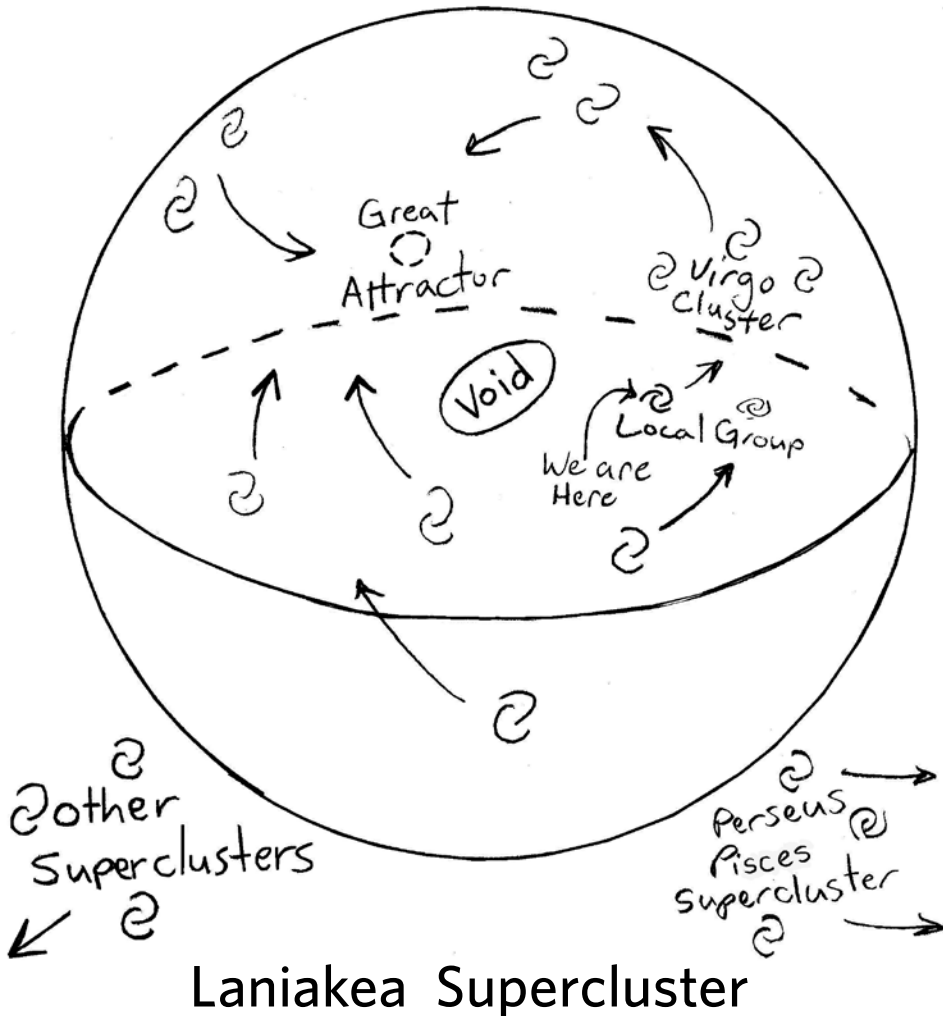 Great
Attractor
Virgo
Cluster
Void
Local Group
We are
Here
other
Superclusters
Perseus
Pisces
Supercluster
Laniakea Supercluster